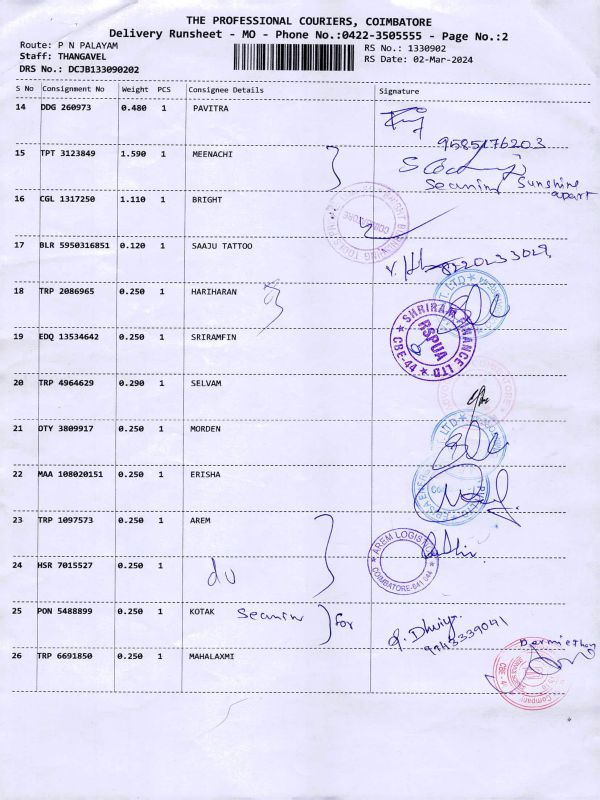 THE PROFESSIONAL COURIERS, COIMBATORE
Delivery Runsheet - MO - Phone No.:0422-3505555 - Page No.:2
Route: P N PALAYAM
RS No.: 1330902
Staff: THANGAVEL
RS Date: 02-Mar-2024
DRS No.: DCJB133090202
S No Consignment No Weight PCS Consignee Details Signature
14 DDG 260973 0.480 1 PAVITRA
9585176203
15 TPT 3123849 1.590 1 MEENACHI
Sunshine
apart
16 CGL 1317250 1.110 1 BRIGHT
COIMBATORE
17 BLR 5950316851 0.120 1 SAAJU TATTOO
8220233029
18 TRP 2086965 0.250 1 HARIHARAN
19 EDQ 13534642 0.250 1 SRIRAMFIN
SHRIRAM FINANCE LTD
RSPUA
CBE-44
20 TRP 4964629 0.290 1 SELVAM
21 DTY 3809917 0.250 1 MORDEN
22 MAA 108020151 0.250 1 ERISHA
23 TRP 1097573 0.250 1 AREM
AREM LOGISTI
COIMBATORE-641 044
24 HSR 7015527 0.250 1 du
25 PON 5488899 0.250 1 KOTAK for
9943339041
26 TRP 6691850 0.250 1 MAHALAXMI